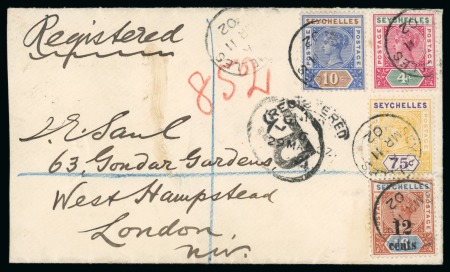 Registered
852
J. E. Saul
63, Gondar Gardens
West Hampstead
London,
N.W.
SEYCHELLES
POSTAGE
POSTAGE
10c
SEYCHELLES
POSTAGE
4c
SEYCHELLES
POSTAGE
POSTAGE
75c
MR 11
02
SEYCHELLES
POSTAGE
12
cents
REGISTERED
MR 11
02